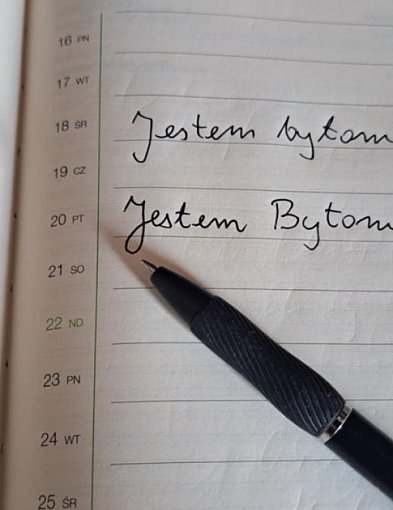 16 PN
17 WT
18 ŚR Jestem bytom
19 CZ
20 PT Jestem Bytom
21 SO
22 ND
23 PN
24 WT
25 ŚR